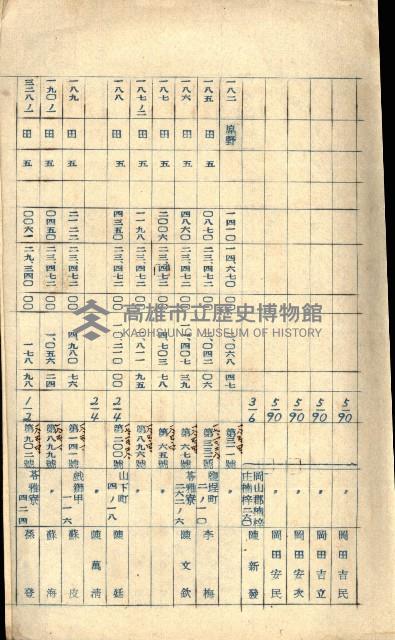 5/90 〃 岡田吉民
5/90 〃 岡田吉立
5/90 〃 岡田安次
5/90 〃 岡田安民
3/6 岡山郡楠梓庄楠梓二六〇 陳新發
一八二 原野 一四一〇 一四、六七〇 〇〇 二、〇六八 四七 第三二一號
一八五 田 五 〇八七〇 二三、四七二 〇〇 二、〇四二 〇六 第三三二號 鹽埕町二ノ一〇 李梅
一八六 田 五 四八六〇 二三、四七二 〇〇 第六七二號 苓雅寮二六二ノ六 陳文欽
一八七 田 五 二〇〇六 二三、四七二 〇〇 四、七〇三 八七 第六五號 〃 〃
一八七ノ二 田 五 一一九八 二三、四七二 〇〇 二、八一一 九五 第八九六號 〃 〃
一八八 田 五 四三五〇 二三、四七二 〇〇 一〇、二一〇 〇〇 2/4 第二〇〇號 山下町四ノ一八 陳廷
2/4 〃 陳萬清
一八九 田 五 二一二二 二三、四七二 〇〇 四、九八〇 七六 第一四一號 戲獅甲一一六 蘇皮
一九〇ノ二 田 五 〇四五〇 二三、四七二 〇〇 一、〇五六 二四 第八九九號 〃 蘇海
三三八ノ一 田 五 〇〇六一 二九、三四〇 〇〇 一七八 九八 1/2 第九〇二號 苓雅寮四二四 孫登
高雄市立歷史博物館
KAOHSIUNG MUSEUM OF HISTORY